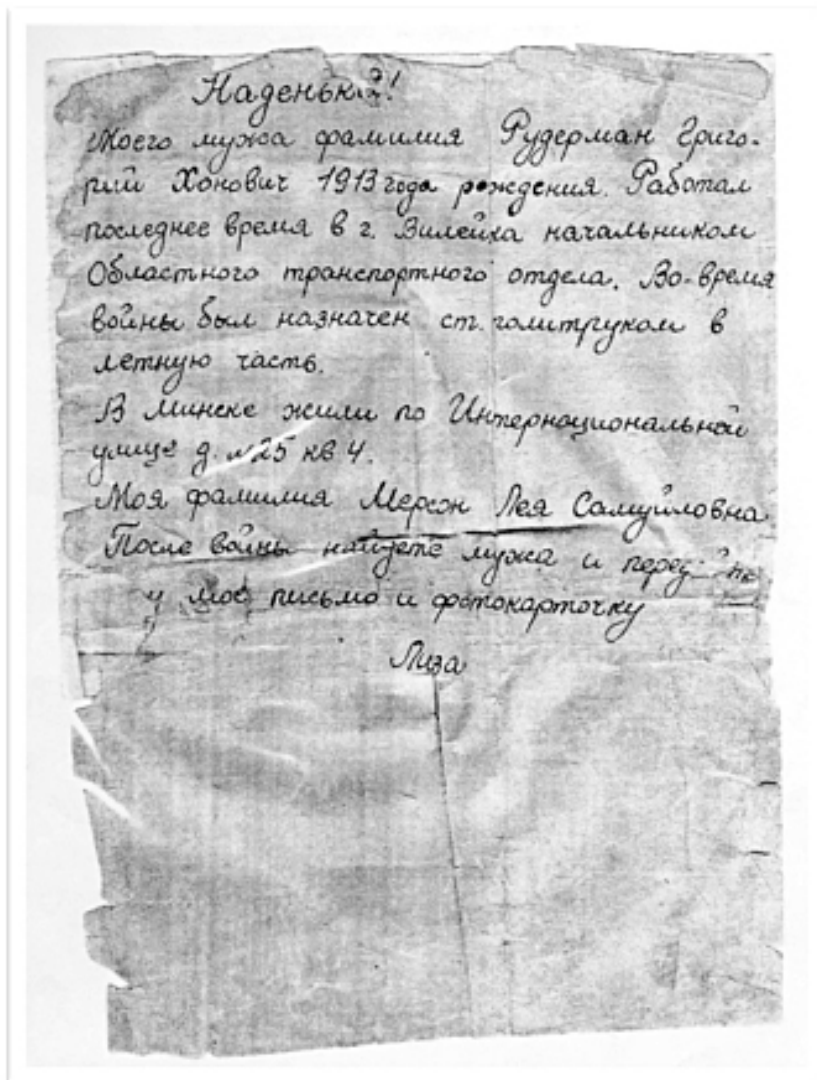 Наденька!
Моего мужа фамилия Рудерман Григо-
рий Хонович 1913 года рождения. Работал
последнее время в г. Вилейка начальником
Областного транспортного отдела. Во-время
войны был назначен ст. политруком в
летную часть.
В Минске жили по Интернациональной
улице д. №25 кв 4.
Моя фамилия Мерсон Лея Самуйловна
После войны найдете мужа и
мое письмо и фотокарточку
Лиза